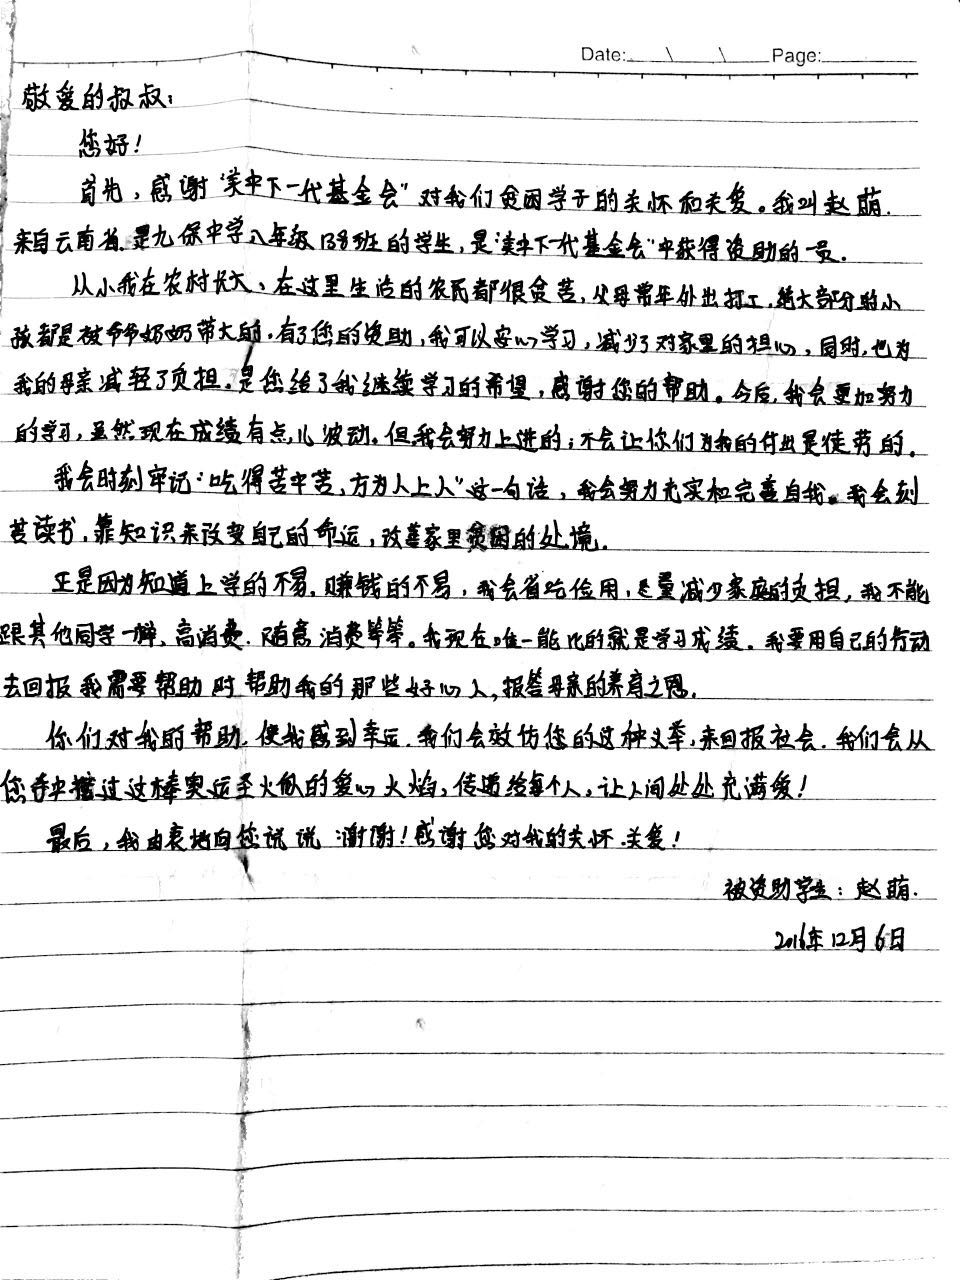 Date: \ \ Page:
敬爱的叔叔:
您好!
首先,感谢“美中下一代基金会”对我们贫困学子的关怀和关爱。我叫赵萌.
来自云南省.是九保中学八年级138班的学生,是“美中下一代基金会”中获得资助的一员.
从小我在农村长大、在这里生活的农民都很贫苦,父母常年外出打工,绝大部分的小
孩都是被爷爷奶奶带大的,有了您的资助,我可以安心学习,减少了对家里的担心,同时,也为
我的母亲减轻了负担.是您给了我继续学习的希望,感谢您的帮助。今后,我会更加努力
的学习,虽然现在成绩有点儿波动。但我会努力上进的;不会让你们为我的付出是徒劳的.
我会时刻牢记“吃得苦中苦,方为人上人”这一句话,我会努力充实和完善自我。我会刻
苦读书,靠知识来改变自己的命运,改善家里贫困的处境.
正是因为知道上学的不易.赚钱的不易,我会省吃俭用,尽量减少家庭的负担,我不能
跟其他同学一样,高消费.随意消费等等。我现在唯一能比的就是学习成绩.我要用自己的行动
去回报我需要帮助时帮助我的那些好心人,报答母亲的养育之恩.
你们对我的帮助.使我感到幸运.我们会效仿您的这种义举,来回报社会.我们会从
您手中接过这棒奥运圣火似的爱心火焰,传递给每个人,让人间处处充满爱!
最后,我由衷地向您说说谢谢!感谢您对我的关怀.关爱!
被资助学生:赵萌.
2016年12月6日